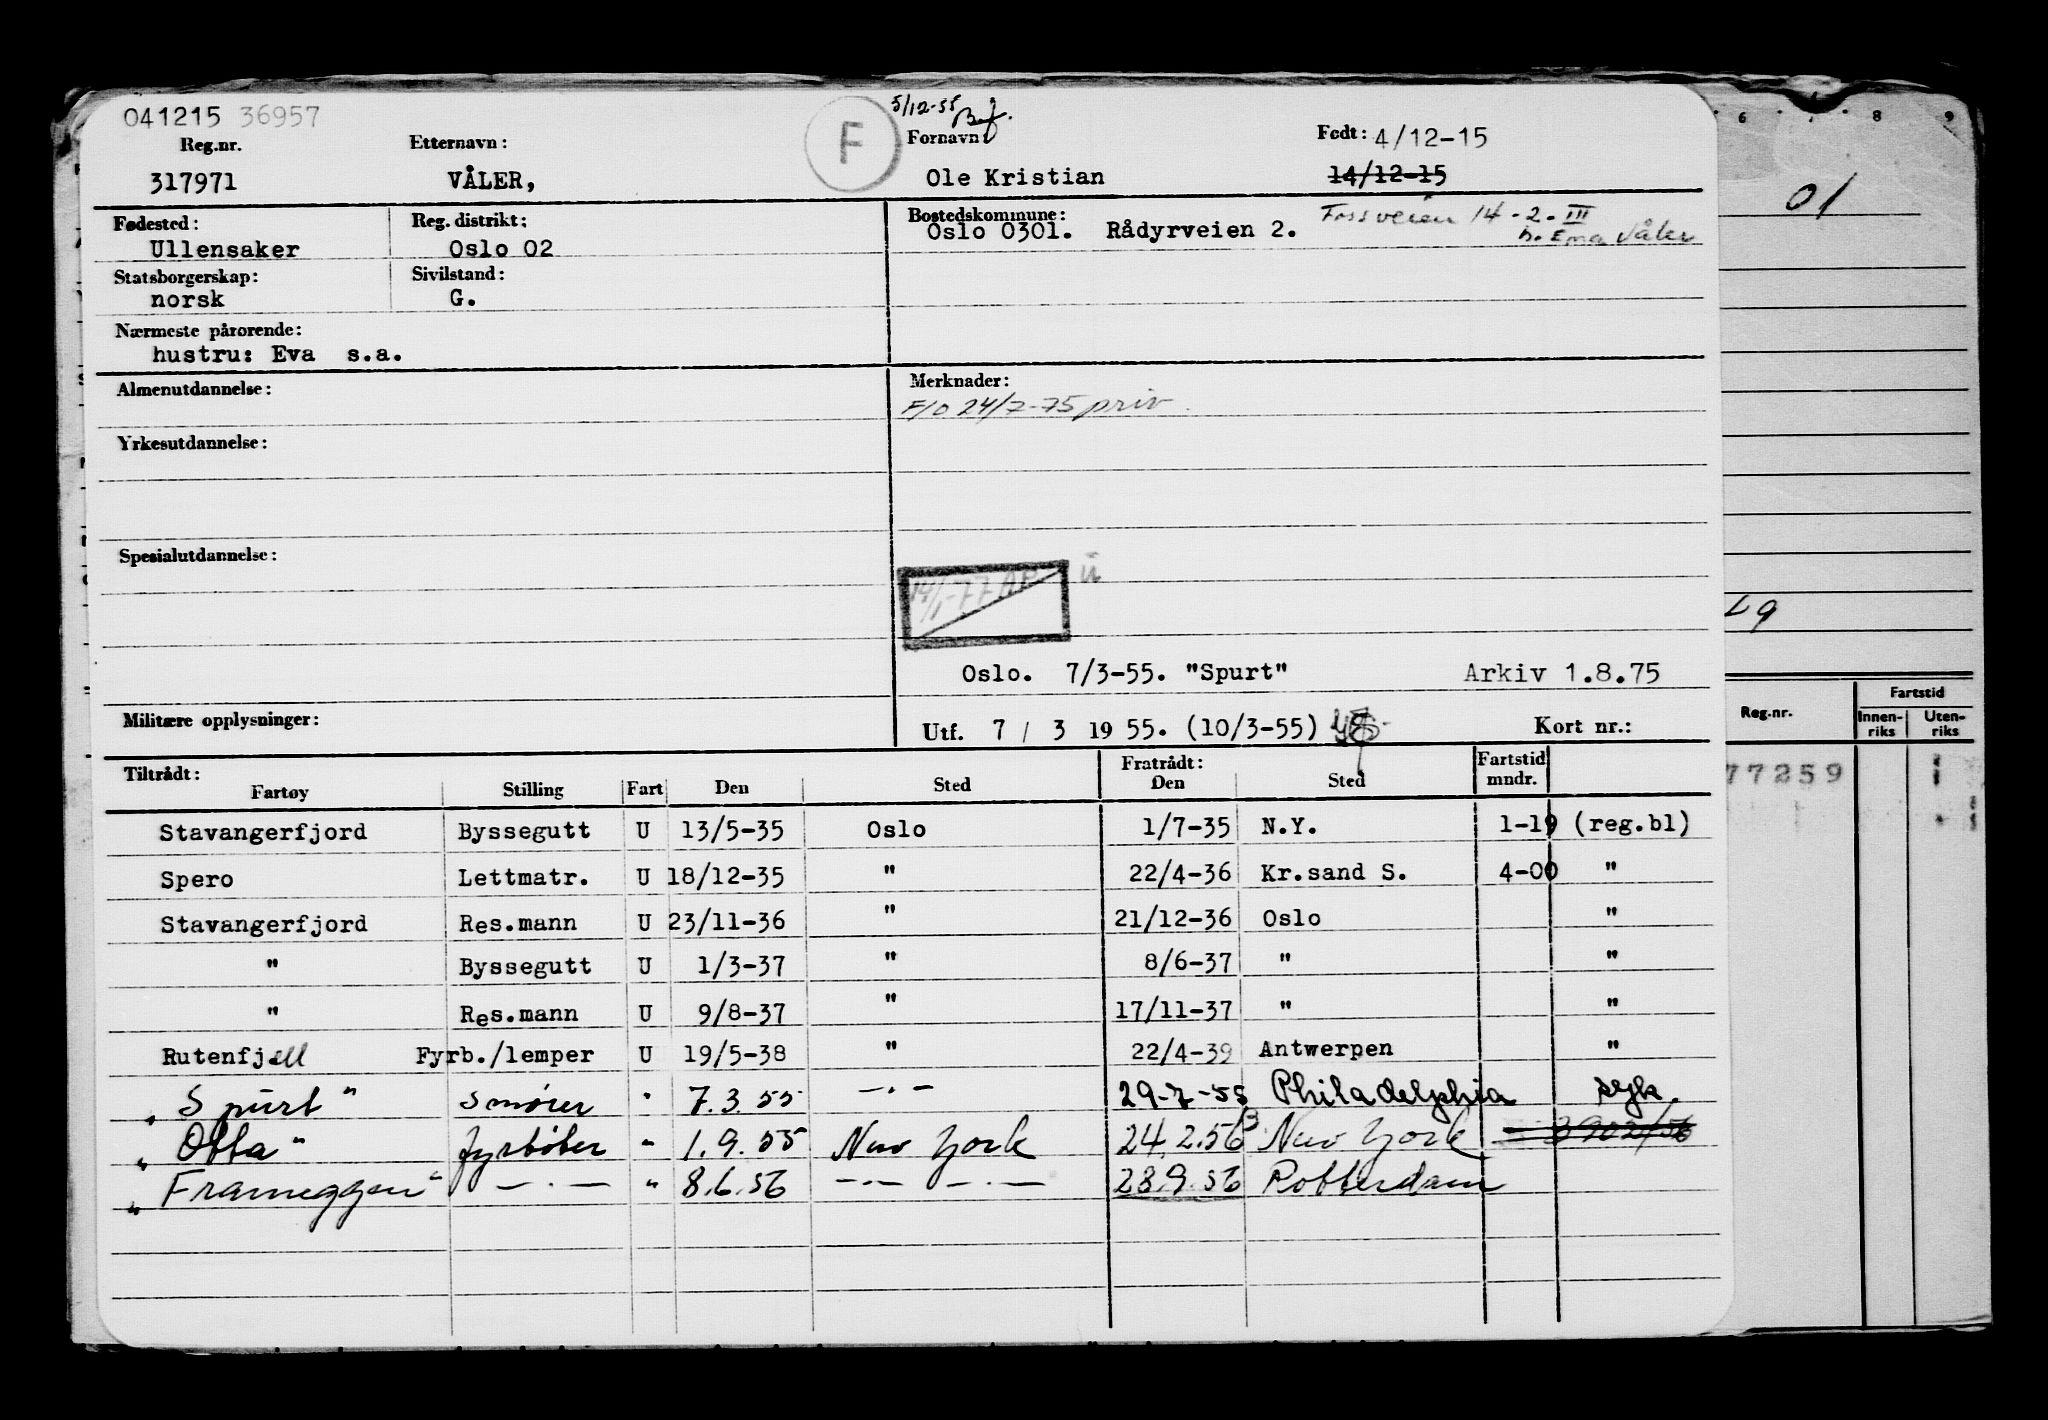 041215 36957
5/12-55
F
Reg.nr. Etternavn: Fornavn Født: 4/12-15
317971 VÅLER, Ole Kristian 14/12-15
Fødested: Reg. distrikt: Bostedskommune: Fossveien 14-2-III
Ullensaker Oslo 02 Oslo 0301. Rådyrveien 2. Våler
Statsborgerskap: Sivilstand:
norsk G.
Nærmeste pårørende:
hustru: Eva s.a.
Almenutdannelse: Merknader:
F/O 24/7-75 priv.
Yrkesutdannelse:
Spesialutdannelse:
14/1-77 AP
Oslo. 7/3-55. "Spurt" Arkiv 1.8.75
Militære opplysninger: Utf. 7 / 3 19 55. (10/3-55) Kort nr.:
Tiltrådt: Fratrådt: Fartstid
Fartøy Stilling Fart Den Sted Den Sted mndr.
Stavangerfjord Byssegutt U 13/5-35 Oslo 1/7-35 N.Y. 1-19 (reg.bl)
Spero Lettmatr. U 18/12-35 " 22/4-36 Kr.sand S. 4-00 "
Stavangerfjord Res.mann U 23/11-36 " 21/12-36 Oslo "
" Byssegutt U 1/3-37 " 8/6-37 " "
" Res.mann U 9/8-37 " 17/11-37 " "
Rutenfjell Fyrb./lemper U 19/5-38 " 22/4-39 Antwerpen "
"Spurt" smører " 7.3.55 —.— 29-7-55 Philadelphia syk.
"Otta" fyrbøter " 1.9.55 New York 24.2.56 New York
"Frameggen" —.— " 8.6.56 —.— —.— 28.9.56 Rotterdam
6 7 8 9
01
29
Reg.nr. Fartstid
Innen-riks Uten-riks
77259